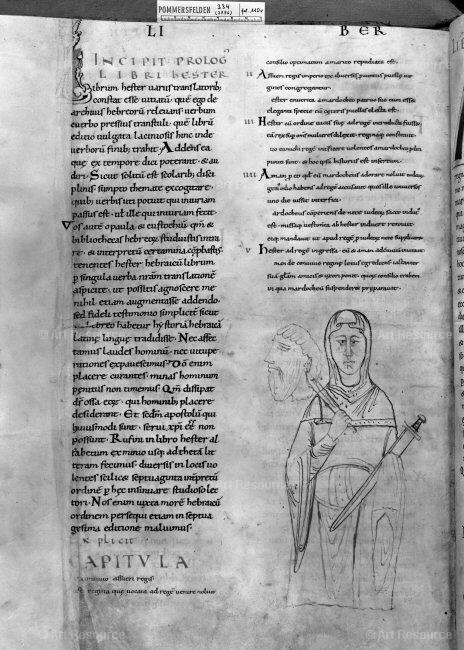 POMMERSFELDEN
334
(2776)
fol. 110v
LI BER
INCIPIT PROLOG
LIBRI hESTER
Librum hester uariis translatorib;
constat esse uitiatū. quē ego de
archiuis hebreorū releuans uerbum
e uerbo pressius transtuli. quē librū
editio uulgata laciniosis hinc inde
uerborū finib; trahit. Addens ea
que ex tempore dici poterant. & au
diri. Sicut solitū est scolarib; disci
plinis sumpto themate excogitare.
quib; uerbis uti potuit qui iniuriam
passus est. ul ille qui iniuriam fecit.
Vos autē o paula & eustochiū. qm̄ &
bibliothecas hebreoꝝ studuistis intra
re. & interpretū certamina cp̄bastis.
tenentes hester hebraicū librum.
p singula uerba nr̄am translationē
aspicite. ut possitis agnoscere me
nihil etiam augmentasse addendo.
sed fideli testimonio simplicit sicut
hebreo habetur hystoriā hebraicā
latine linguę tradidisse. Nec affec
tamus laudes hominū. nec uitupe
rationes expauescimus. Dō enim
placere curantes. minas hominum
penitus non timemus. Qm̄ dissipat
dr̄ ossa eoꝝ. qui hominib; placere
desiderant. Et sedm̄ apostolū qui
huiusmodi sunt. serui xpi eē non
possunt. Rufini in libro hester al
fabetum ex minio usq; ad theta lit
teram fecimus. diuersis in locis uo
lentes scilic& septuaginta int̄pretū
ordinē p hec insinuare studioso lec
tori. Nos enim iuxta morē hebraicū
ordinem persequi etiam in septua
gesima editione maluimus.
xplicit
CAPITVLA
onuiuio assueri regis
regina que uocata ad regē uenire noluit
consilio optimatum amarico repudiata est.
II Assueri regis imperio ex diuersis puincus puelle uir
gines congregantur.
ester enutrita a mardocheo patruo suo cum esset
elegantis speciei cū ceteris puellis electa est.
III Hester cū ordine uicis sue ad regē introducta fuisset
eā rex sup oms̄ mulieres dilexit. regnaq; constituit.
eo conuiuiū regē interficere uolentes a mardocheo p̄ditī
puniti sunt. & hoc ipsū historiis est insertum.
IIII Aman p eo qd eū mardocheus adorare noluit. iudeoꝝ
genti odio habens. ad regē accusauit quasi ille uniuersis
uno die iussit interfici.
ardocheus cōperiens de nece iudeoꝝ. sacco indutꝰ
est. missisq; uestib; ab hester induere renuit.
eiq; mandauit ut apud regē p iudeis supplicaret.
V Hester ad regē ingressa. eū & aman ad conuiuium
man de conuiuio regine letus egrediens. iactanter
suā gliā amicis & uxori ponit. quoꝝ consilio crucem
in qua mardocheū suspenderet preparauit.
© Art Resource